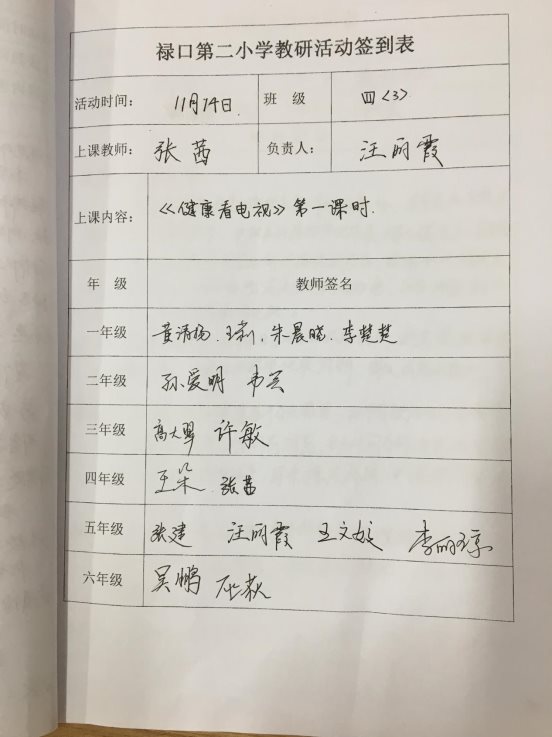 禄口第二小学教研活动签到表
活动时间： 11月14日 班 级 四〈3〉
上课教师： 张茜 负责人： 汪丽霞
上课内容： 《健康看电视》第一课时.
年 级 教师签名
一年级 王莉. 朱晨晓. 李楚楚
二年级 孙爱明 韦芸
三年级 高大翠 许敏
四年级 王朵 张茜
五年级 张建 汪丽霞 王文姣 李丽琼
六年级 吴鹏